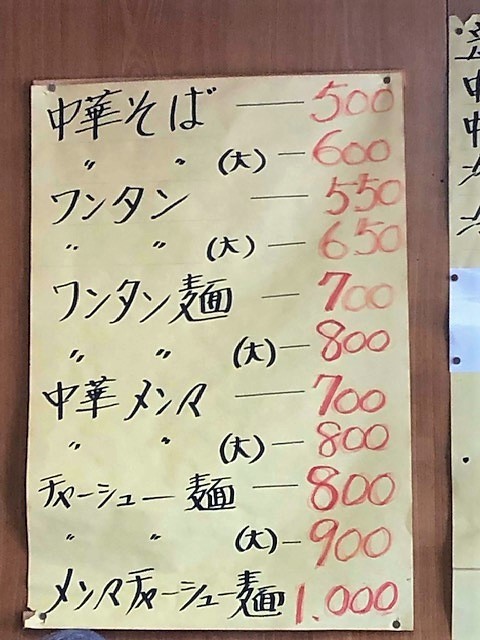 中華そば — 500
〃 〃 (大) — 600
ワンタン — 550
〃 〃 (大) — 650
ワンタン麺 — 700
〃 〃 (大) — 800
中華メンマ — 700
〃 〃 (大) — 800
チャーシュー麺 — 800
〃 〃 (大) — 900
メンマチャーシュー麺 1.000